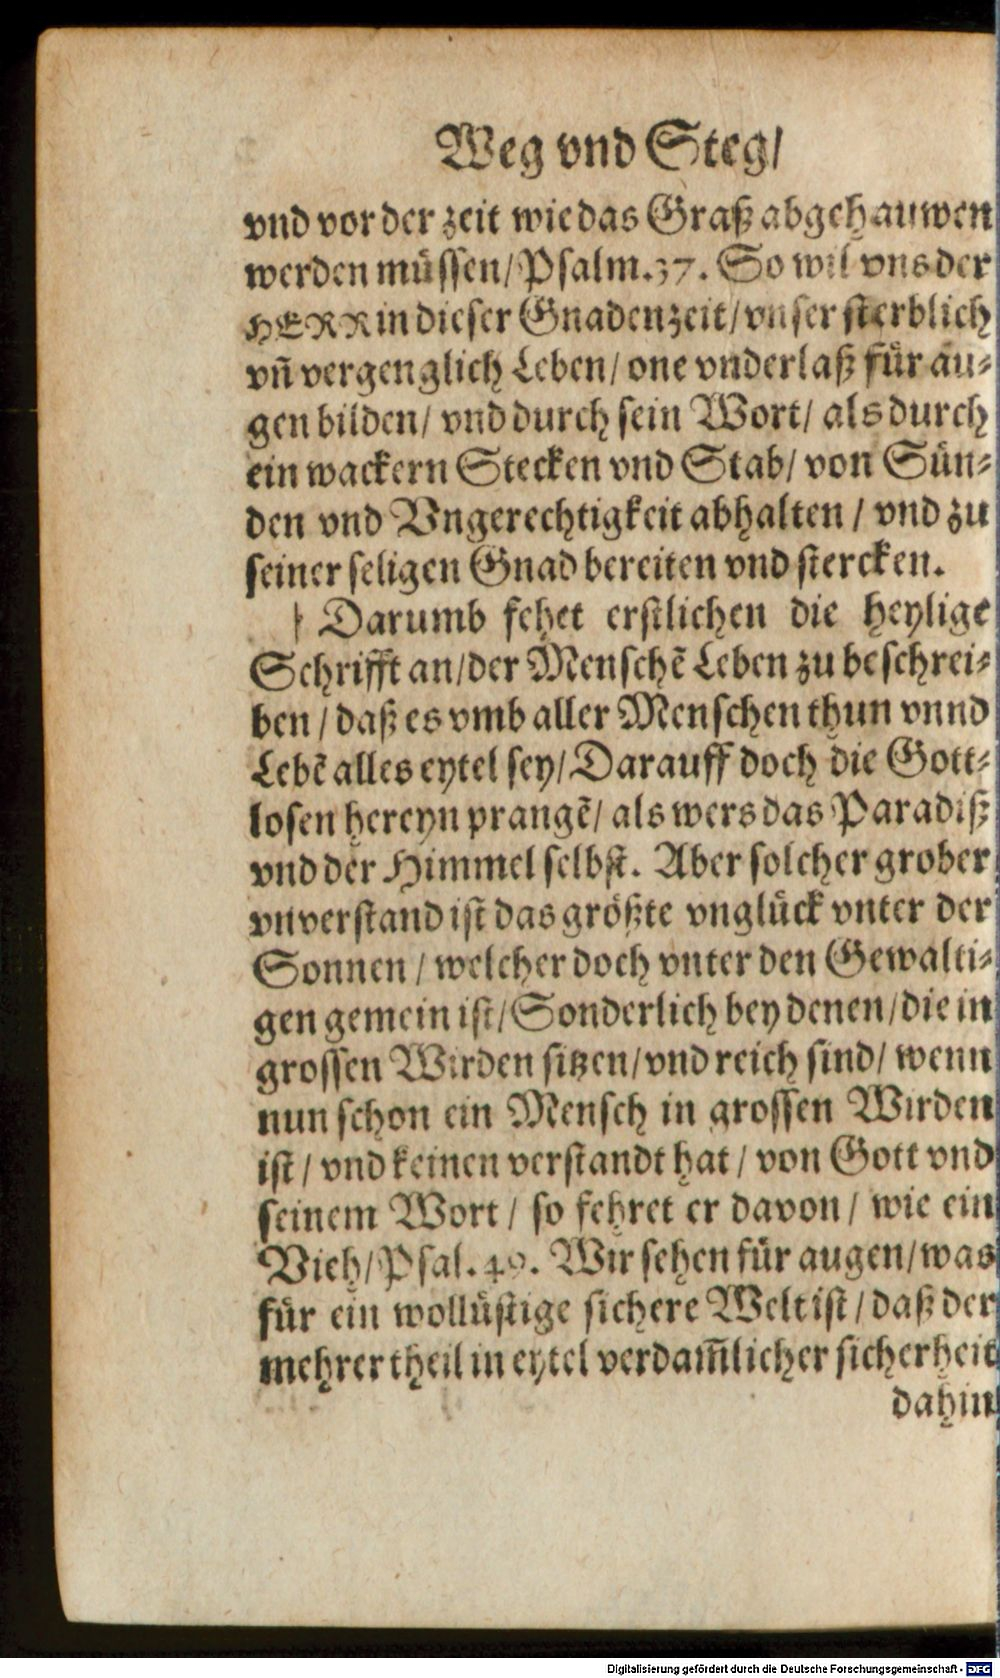 Weg vnd Steg/
vnd vor der zeit wie das Graß abgehauwen
werden müssen/Psalm.37. So wil vns der
HERR in dieser Gnadenzeit/vnser sterblich
vñ vergenglich Leben/ one vnderlaß für au-
gen bilden/ vnd durch sein Wort/ als durch
ein wackern Stecken vnd Stab/ von Sün-
den vnd Vngerechtigkeit abhalten / vnd zu
seiner seligen Gnad bereiten vnd stercken.
Darumb fehet erstlichen die heylige
Schrifft an/der Menschẽ Leben zu beschrei-
ben / daß es vmb aller Menschen thun vnnd
Lebẽ alles eytel sey/ Darauff doch die Gott-
losen hereyn prangẽ/ als wers das Paradiß
vnd der Himmel selbst. Aber solcher grober
vnverstand ist das größte vnglück vnter der
Sonnen / welcher doch vnter den Gewalti-
gen gemein ist/ Sonderlich bey denen/die in
grossen Wirden sitzen/vnd reich sind/ wenn
nun schon ein Mensch in grossen Wirden
ist / vnd keinen verstandt hat / von Gott vnd
seinem Wort / so fehret er davon / wie ein
Vieh/Psal.49. Wir sehen für augen/was
für ein wollüstige sichere Welt ist / daß der
mehrer theil in eytel verdam̃licher sicherheit
dahin
Digitalisierung gefördert durch die Deutsche Forschungsgemeinschaft - DFG